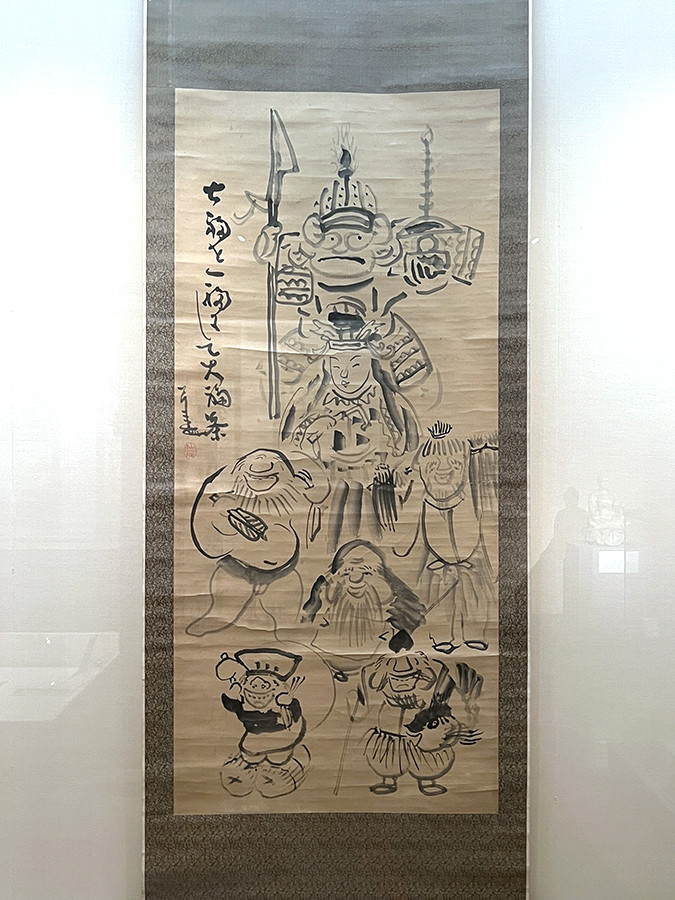 七福を一福にして大福茶